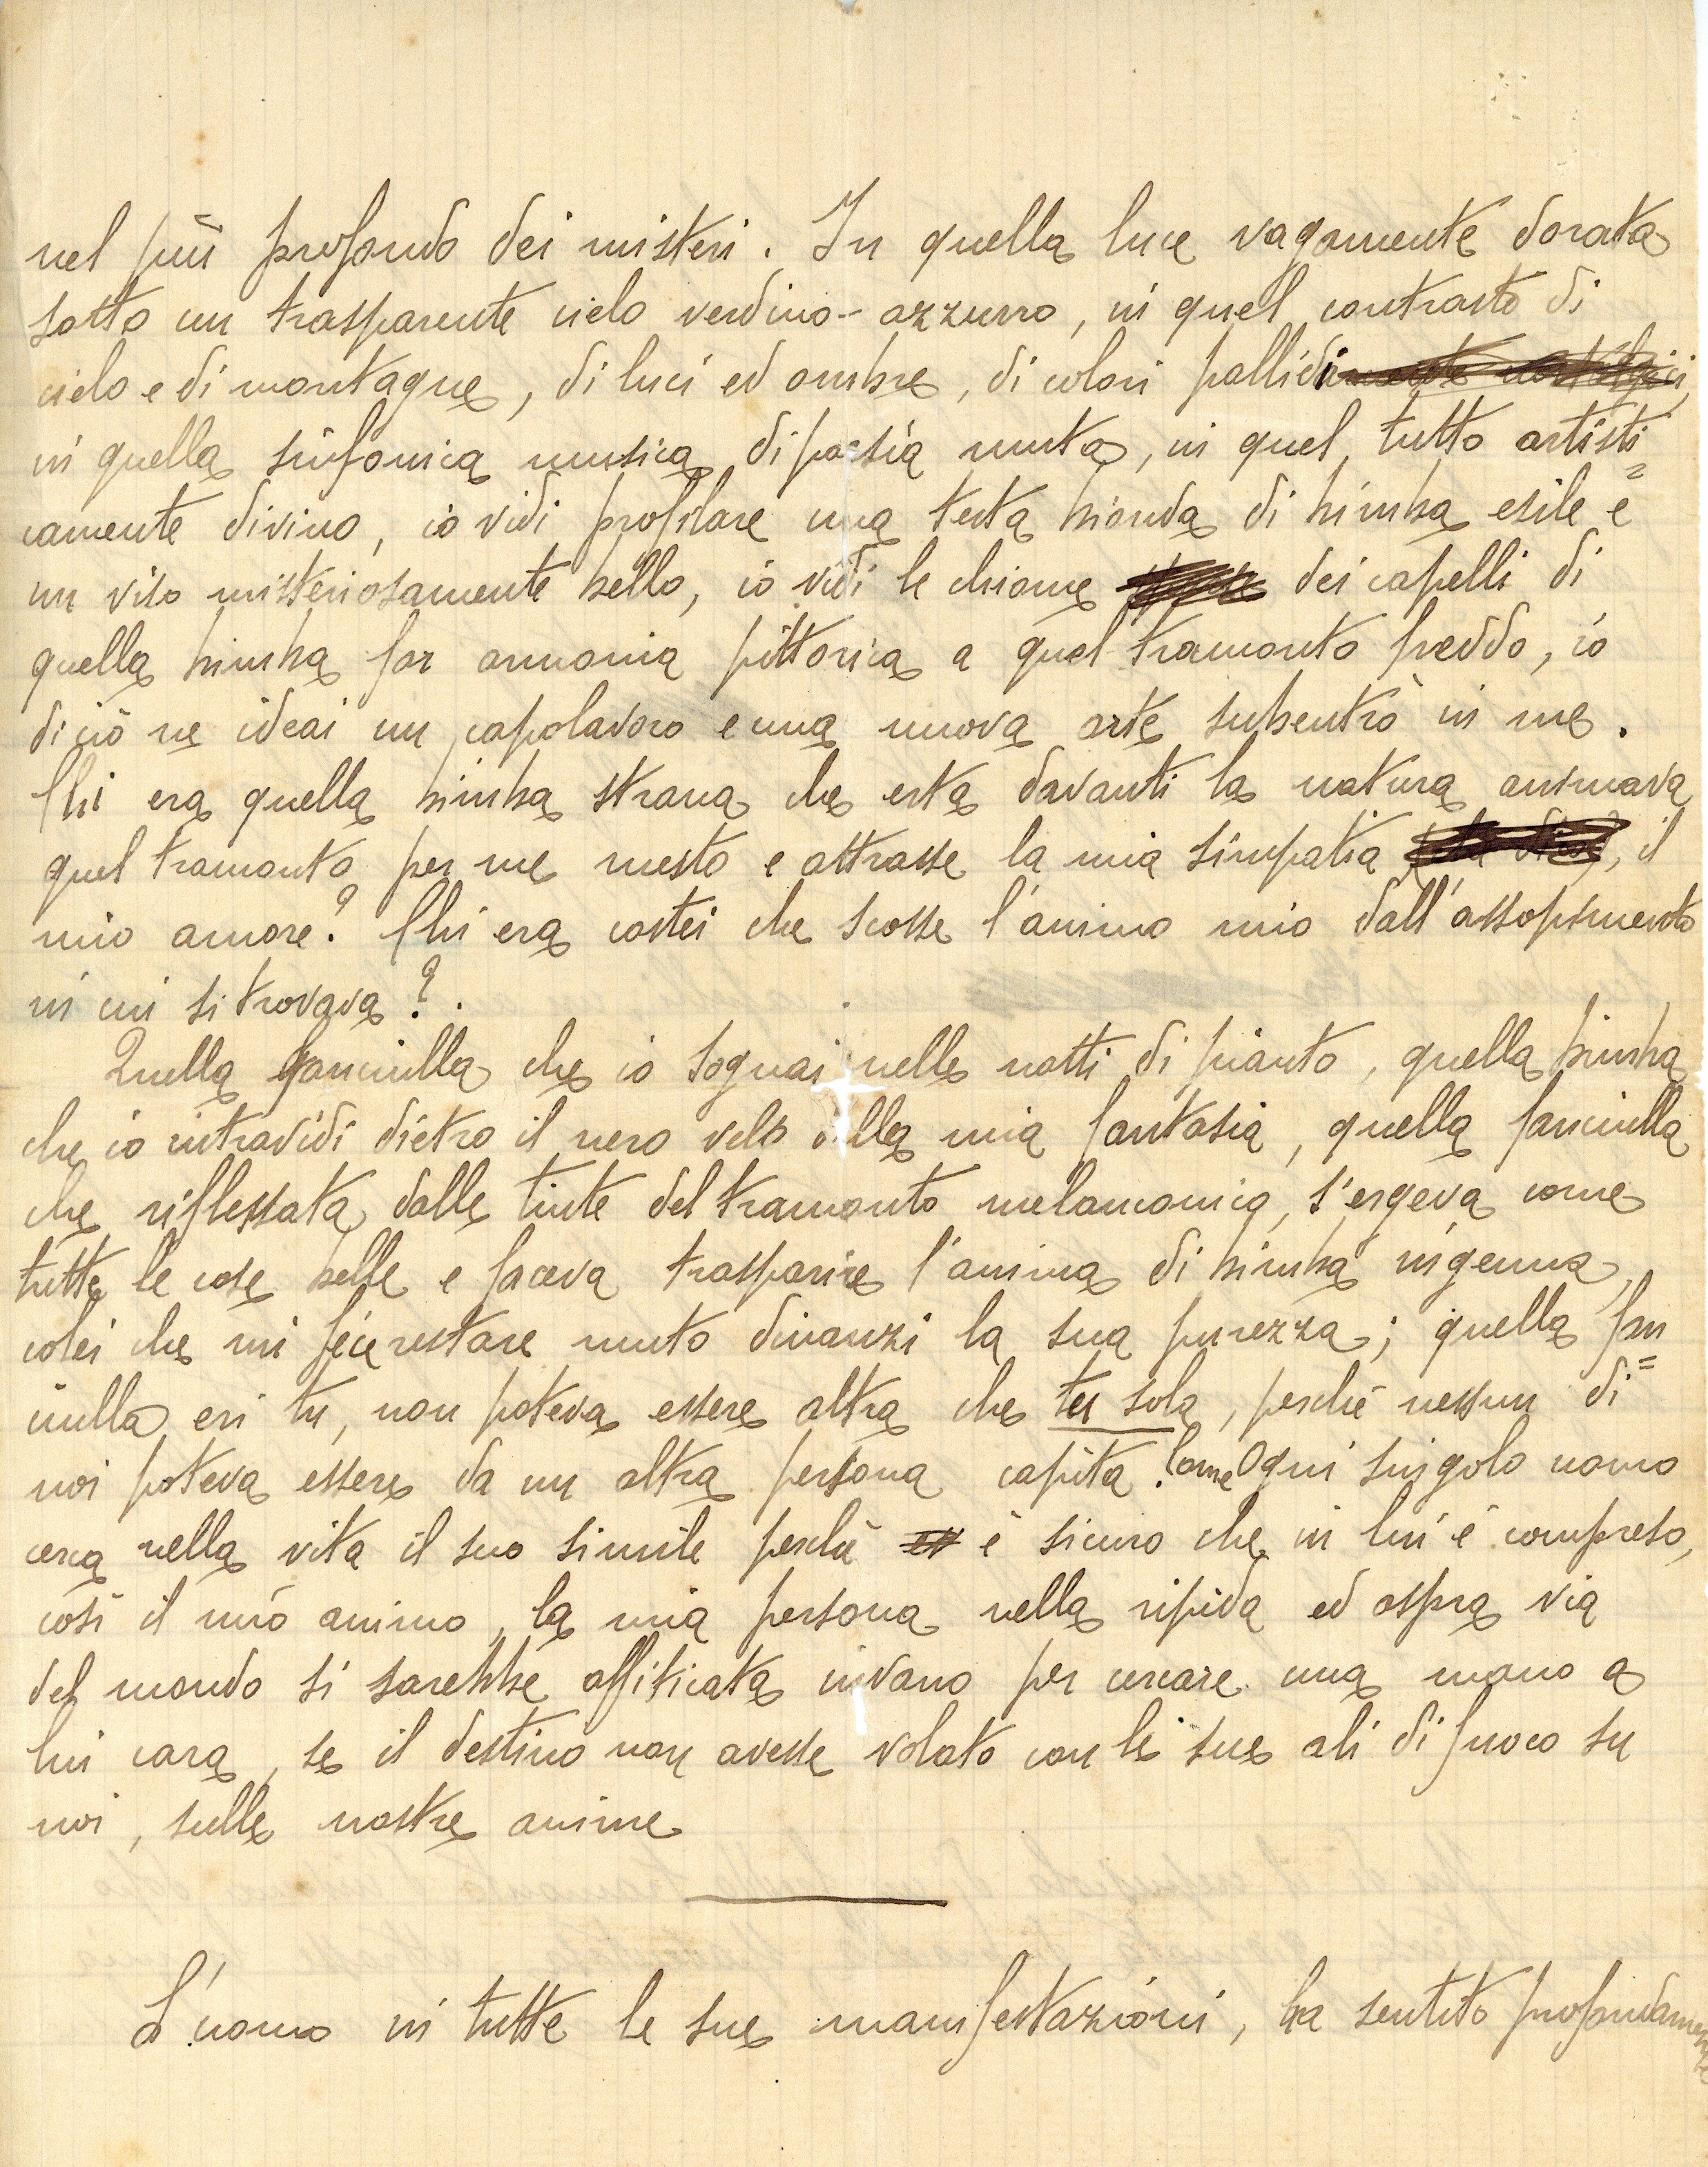 nel più profondo dei misteri. In quella luce vagamente dorata
sotto un trasparente cielo verdino-azzurro, in quel contrasto di
cielo e di montagne, di luci ed ombre, di colori pallidi,
in quella sinfonica musica di poesia muta, in quel tutto artisti=
camente divino, io vidi profilare una testa bionda di bimba esile e
un viso misteriosamente bello, io vidi le chiome dei capelli di
quella bimba far armonia pittorica a quel tramonto freddo, io
di ciò ne ideai un capolavoro e una nuova arte subentrò in me.
Chi era quella bimba strana che erta davanti la natura animava
quel tramonto per me mesto e attrasse la mia simpatia, il
mio amore? Chi era costei che scosse l'animo mio dall'assopimento
in cui si trovava?.
Quella fanciulla che io sognai nelle notti di pianto, quella bimba
che io intravidi dietro il nero velo della mia fantasia, quella fanciulla
che riflessata dalle tinte del tramonto melanconico, s'ergeva come
tutte le cose belle e faceva trasparire l'anima di bimba ingenua,
colei che mi fece restare muto dinanzi la sua purezza; quella fan=
ciulla eri tu, non poteva essere altra che tu sola, perchè nessun di
noi poteva essere da un altra persona capita. Come Ogni singolo uomo
cerca nella vita il suo simile perchè è sicuro che in lui è compreso,
così il mio animo, la mia persona nella ripida ed aspra via
del mondo si sarebbe affiticata invano per cercare una mano a
lui cara, se il destino non avesse volato con le sue ali di fuoco su
noi, sulle nostre anime
L'uomo in tutte le sue manifestazioni, ha sentito profondamente